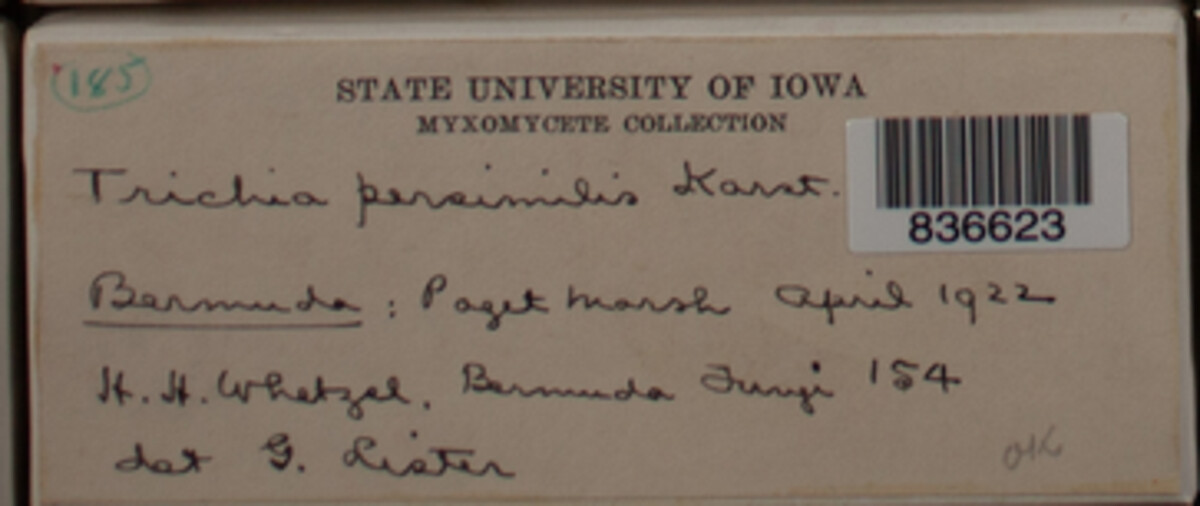 185
STATE UNIVERSITY OF IOWA
MYXOMYCETE COLLECTION
Trichia persimilis Karst.
836623
Bermuda : Paget Marsh April 1922
H. H. Whetzel. Bermuda Fungi 154
det G. Lister
OK